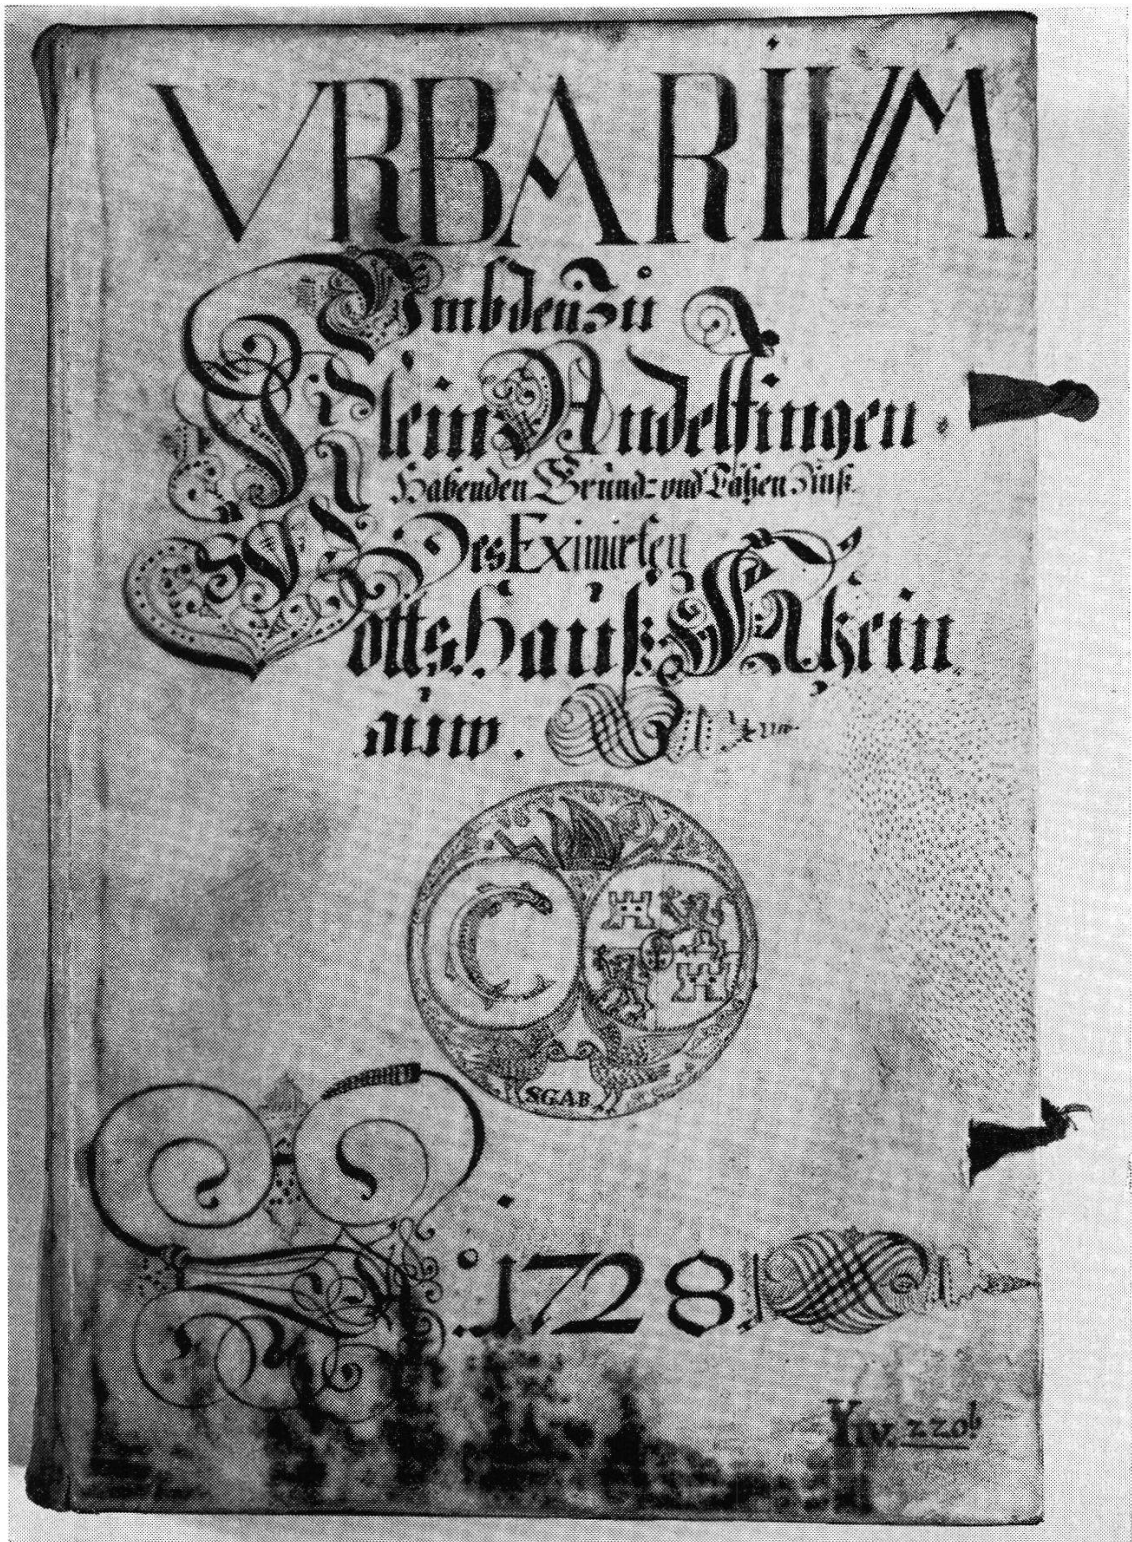 VRBARIVM.
Vmb den Zŭ
Klein Andelfingen.
Habenden Grŭnd= vnd Lähen Zinß.
Des Eximirten
Gotts Haŭß Rhein
aŭw.
SGAB
.1728.